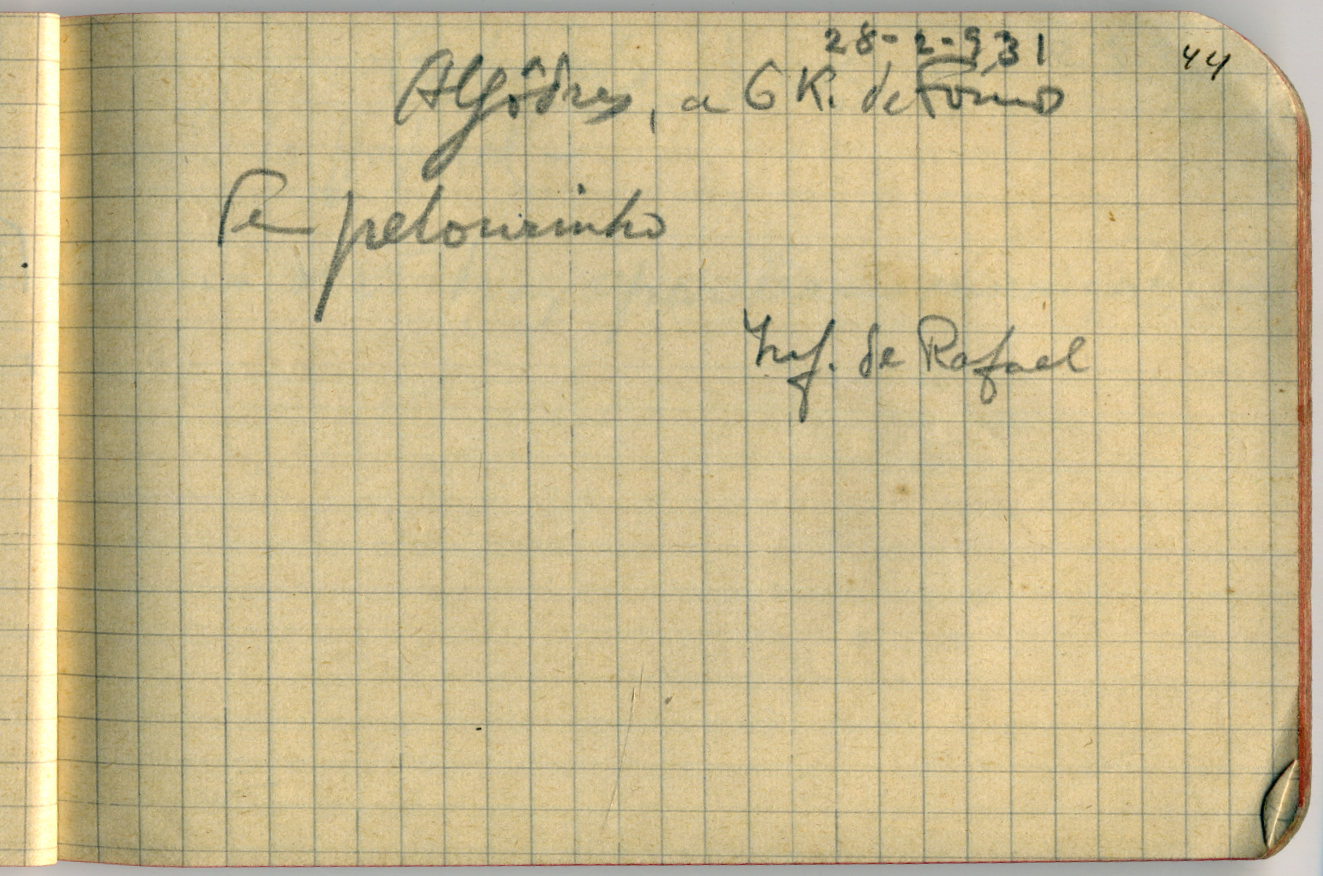 28-2-931
44
Algôdres, a 6 K. de Fornos
Tem pelourinho
Inf. de Rafael